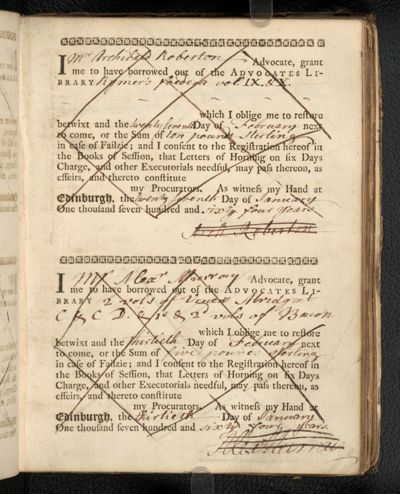 I Mr Archibald Roberton Advocate, grant
me to have borrowed out of the ADVOCATES LI-
BRARY Rymer's foedera vol IX. & X.
which I oblige me to restore
betwixt and the twenty seventh Day of February next
to come, or the Sum of ten pounds Sterling
in case of Failzie; and I consent to the Registration hereof in
the Books of Session, that Letters of Horning on six Days
Charge, and other Executorials needful, may pass thereon, as
effeirs, and thereto constitute
my Procurators. As witness my Hand at
Edinburgh, the twenty seventh Day of January
One thousand seven hundred and sixty four years.
Arch Roberton
I Mr Alexr Murray Advocate, grant
me to have borrowed out of the ADVOCATES LI-
BRARY 2 vols of Viners Abridgmt
C & C D. & 1st & 2d vols of Bacon
which I oblige me to restore
betwixt and the thirtieth Day of February next
to come, or the Sum of five pounds sterling
in case of Failzie; and I consent to the Registration hereof in
the Books of Session, that Letters of Horning on six Days
Charge, and other Executorials needful, may pass thereon, as
effeirs, and thereto constitute
my Procurators. As witness my Hand at
Edinburgh, the thirtieth Day of January
One thousand seven hundred and sixty four years.